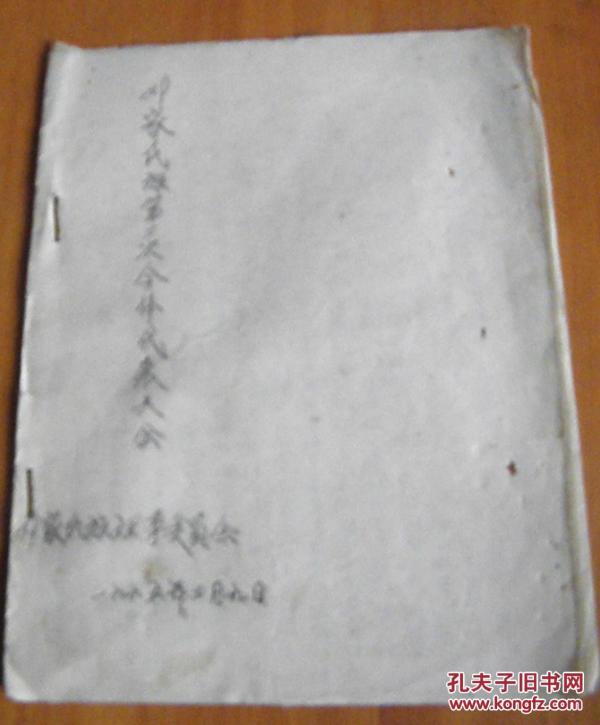 家氏族第二次全体代表大会
家氏族委员会
一九八五年二月九日
孔夫子旧书网
www.kongfz.com